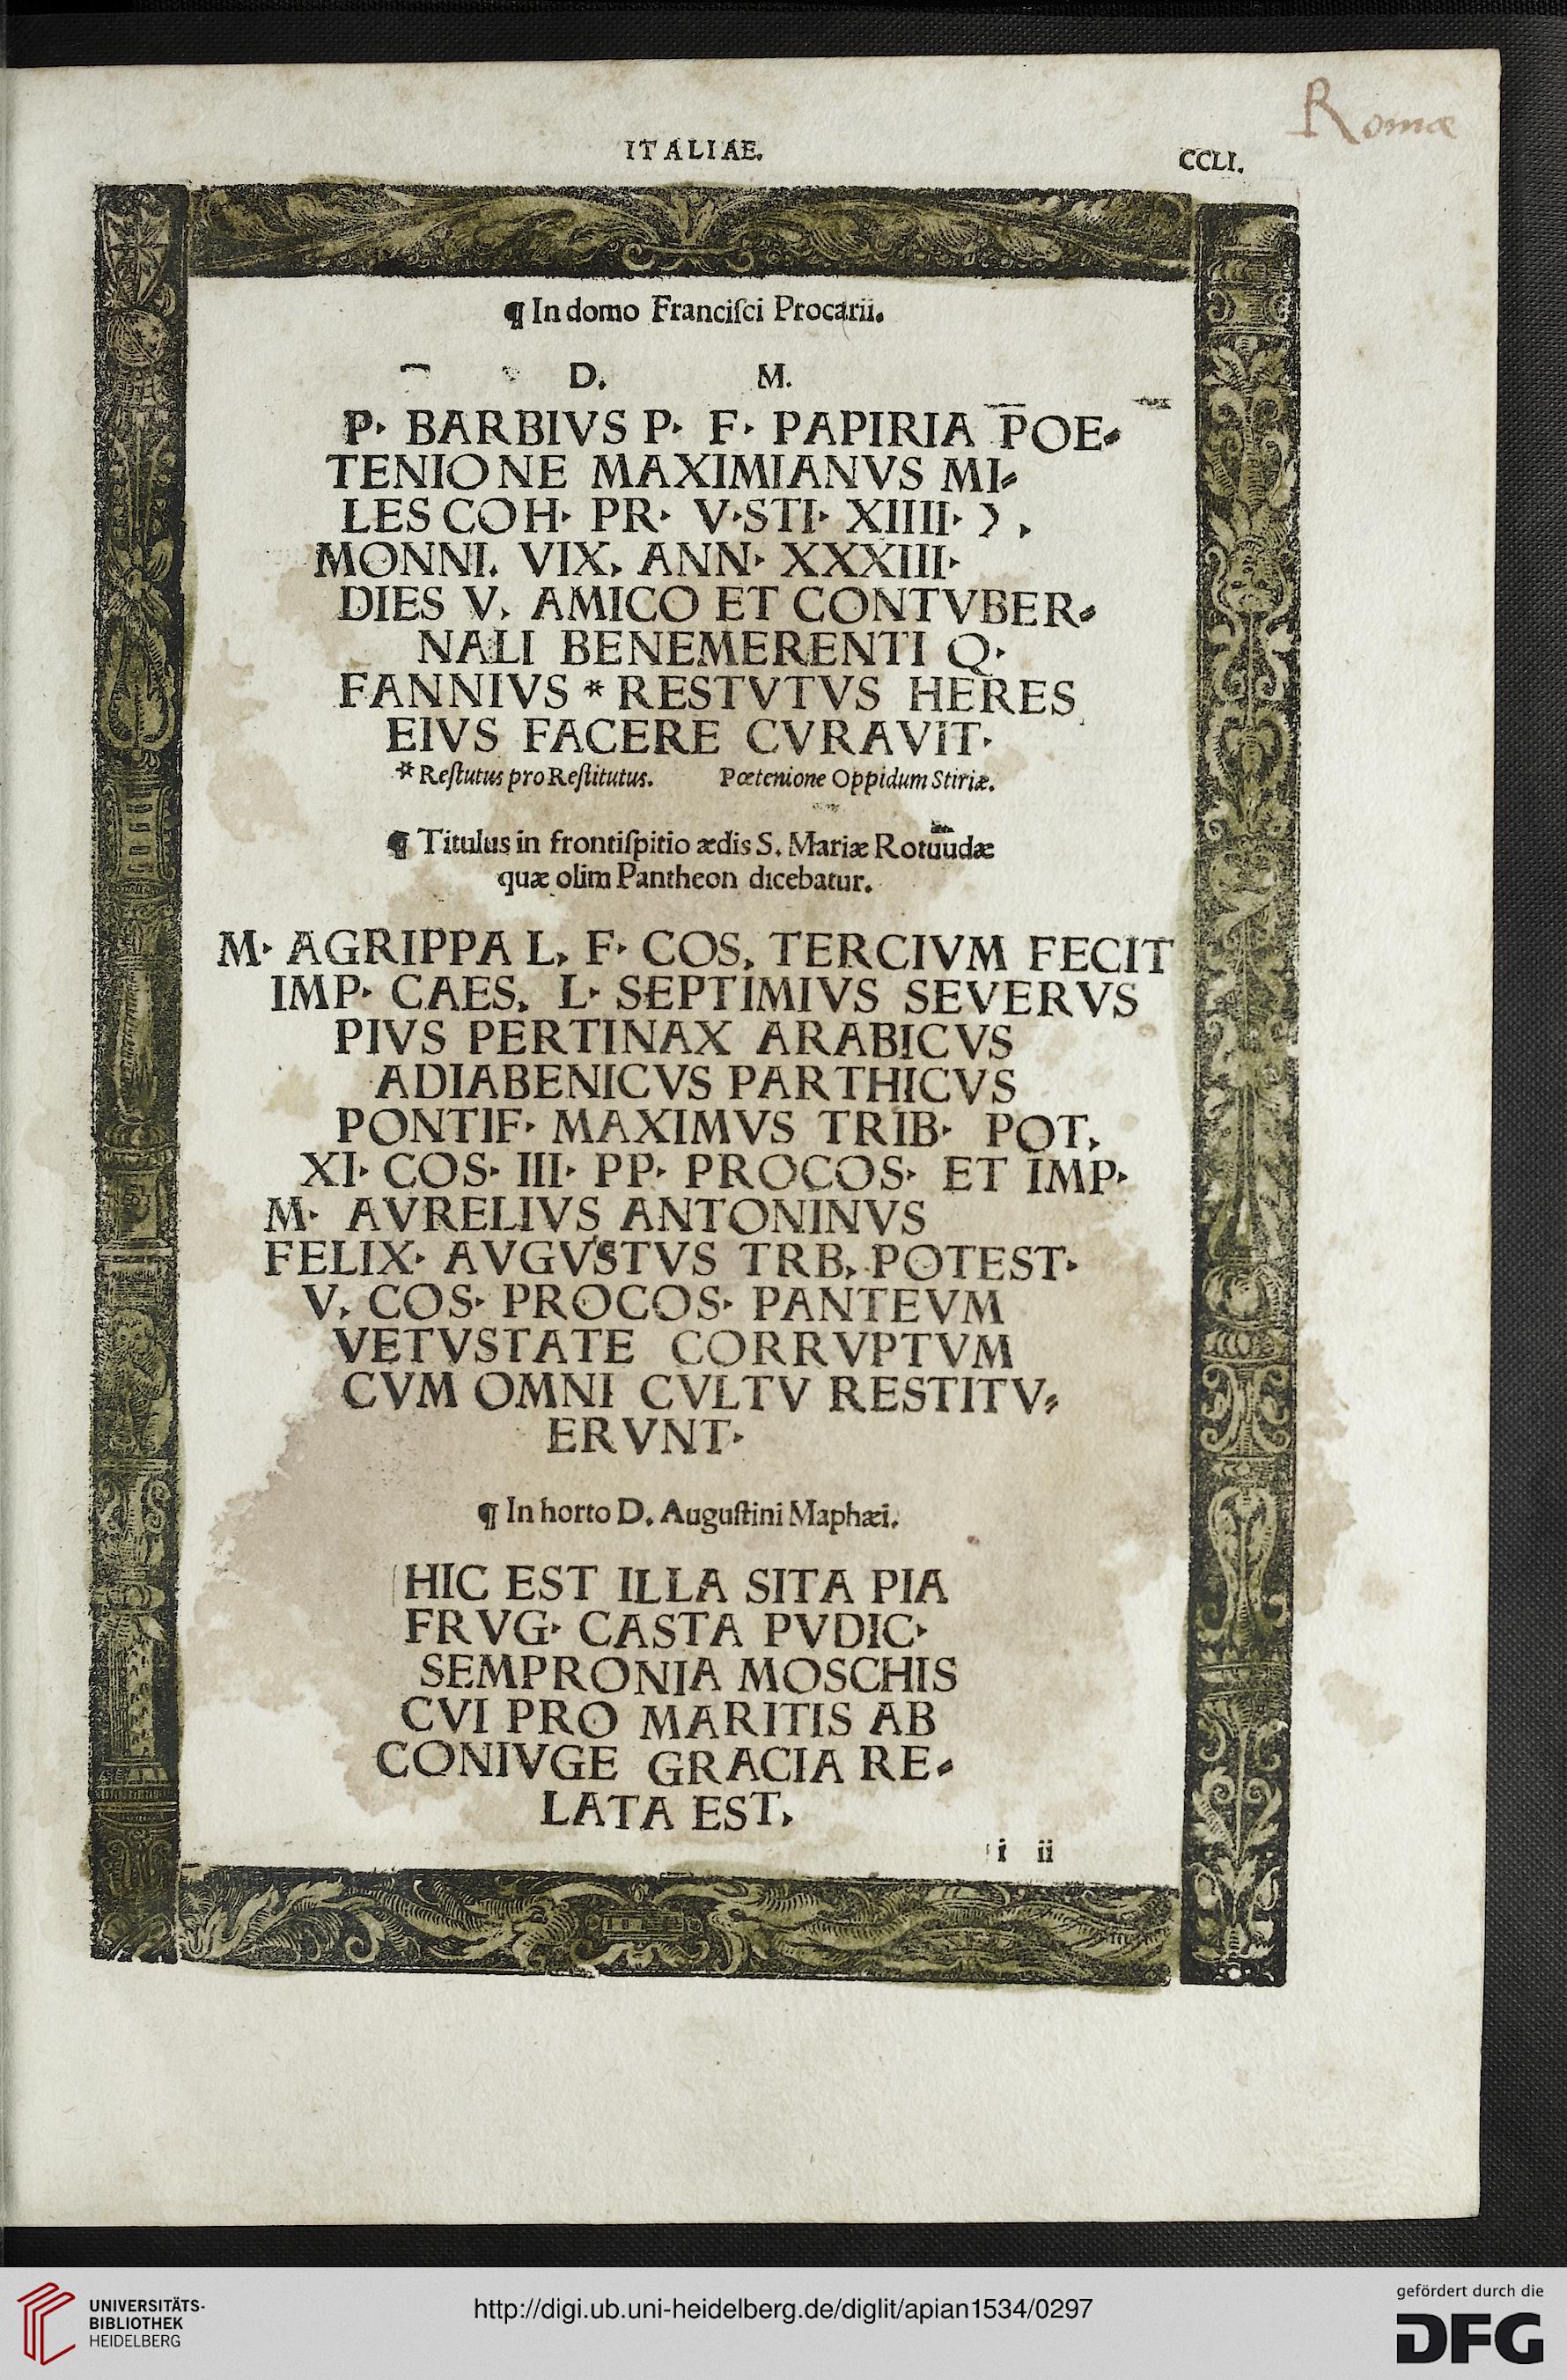 Romæ
ITALIAE.
CCLI.
¶ In domo Franciſci Procarii.
D. M.
P· BARBIVS P· F· PAPIRIA POE⸗
TENIONE MAXIMIANVS MI⸗
LES COH· PR· V·STI· XIIII· Ↄ,
MONNI. VIX, ANN· XXXIII·
DIES V, AMICO ET CONTVBER⸗
NALI BENEMERENTI Q·
FANNIVS * RESTVTVS HERES
EIVS FACERE CVRAVIT·
* Reſtutus pro Reſtitutus. Pœtenione Oppidum Stiriæ.
¶ Titulus in frontiſpitio ædis S. Mariæ Rotuudæ
quæ olim Pantheon dicebatur.
M· AGRIPPA L, F· COS, TERCIVM FECIT
IMP· CAES, L· SEPTIMIVS SEVERVS
PIVS PERTINAX ARABICVS
ADIABENICVS PARTHICVS
PONTIF· MAXIMVS TRIB· POT,
XI· COS· III· PP· PROCOS· ET IMP·
M· AVRELIVS ANTONINVS
FELIX· AVGVSTVS TRB, POTEST·
V, COS· PROCOS· PANTEVM
VETVSTATE CORRVPTVM
CVM OMNI CVLTV RESTITV⸗
ERVNT·
¶ In horto D. Auguſtini Maphæi.
HIC EST ILLA SITA PIA
FRVG· CASTA PVDIC·
SEMPRONIA MOSCHIS
CVI PRO MARITIS AB
CONIVGE GRACIA RE⸗
LATA EST,
i ii
UNIVERSITÄTS-
BIBLIOTHEK
HEIDELBERG
http://digi.ub.uni-heidelberg.de/diglit/apian1534/0297
gefördert durch die
DFG